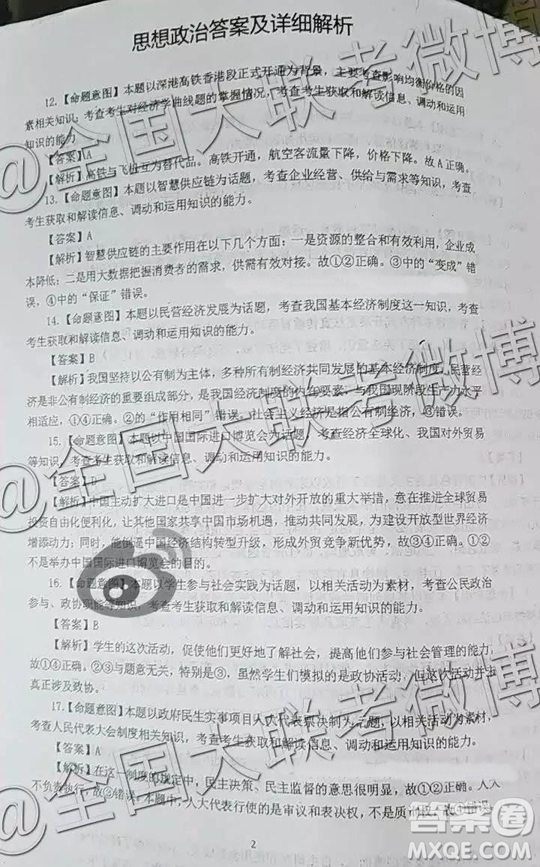 思想政治答案及详细解析
12.【命题意图】本题以深港高铁香港段正式开通为背景，主要考查影响均衡价格的因
素相关知识，考查考生对经济学曲线题的掌握情况，考查考生获取和解读信息、调动和运用
知识的能力
【答案】A
【解析】高铁与飞机互为替代品。高铁开通，航空客流量下降，价格下降。故 A 正确。
13.【命题意图】本题以智慧供应链为话题，考查企业经营、供给与需求等知识，考查
考生获取和解读信息、调动和运用知识的能力。
【答案】A
【解析】智慧供应链的主要作用在以下几个方面：一是资源的整合和有效利用，企业成
本降低；二是用大数据把握消费者的需求，供需有效对接。故①②正确。③中的“变成”错
误，④中的“保证”错误。
14.【命题意图】本题以民营经济发展为话题，考查我国基本经济制度这一知识，考查
考生获取和解读信息、调动和运用知识的能力。
【答案】B
【解析】我国坚持以公有制为主体，多种所有制经济共同发展的基本经济制度。民营经
济是非公有制经济的重要组成部分，是我国经济制度的内在要素，与我国现阶段生产力水平
相适应，①④正确。②的“作用相同”错误。社会主义经济是指公有制经济，③错误。
15.【命题意图】本题以中国国际进口博览会为话题，考查经济全球化、我国对外贸易
等知识，考查考生获取和解读信息、调动和运用知识的能力。
【答案】
【解析】中国主动扩大进口是中国进一步扩大对外开放的重大举措，意在推进全球贸易
投资自由化便利化，让其他国家共享中国市场机遇，推动共同发展，为建设开放型世界经济
增添动力；同时，能倒逼中国经济结构转型升级，形成外贸竞争新优势，故③④正确。①②
不是举办中国国际进口博览会的目的。
16.【命题意图】本题以学生参与社会实践为话题，以相关活动为素材，考查公民政治
参与、政协职能等知识，考查考生获取和解读信息、调动和运用知识的能力。
【答案】B
【解析】学生的这次活动，促使他们更好地了解社会，提高他们参与社会管理的能力。
故①④正确。②③与题意无关，特别是③，虽然学生们模拟的是政协活动，但这次活动并没
真正涉及政协。
17.【命题意图】本题以政府民生实事项目人大代表票决制为主题，以相关活动为素材，
考查人民代表大会制度相关知识，考查考生获取和解读信息、调动和运用知识的能力。
【答案】A
【解析】在这一制度的规定中，民主决策、民主监督的意思很明显，故①②正确。人大
不负责执行，故③错误。本题中，人大代表行使的是审议和表决权，不是质询权，故④错误。
2
@全国大联考微博
答案圈
MXQE.COM